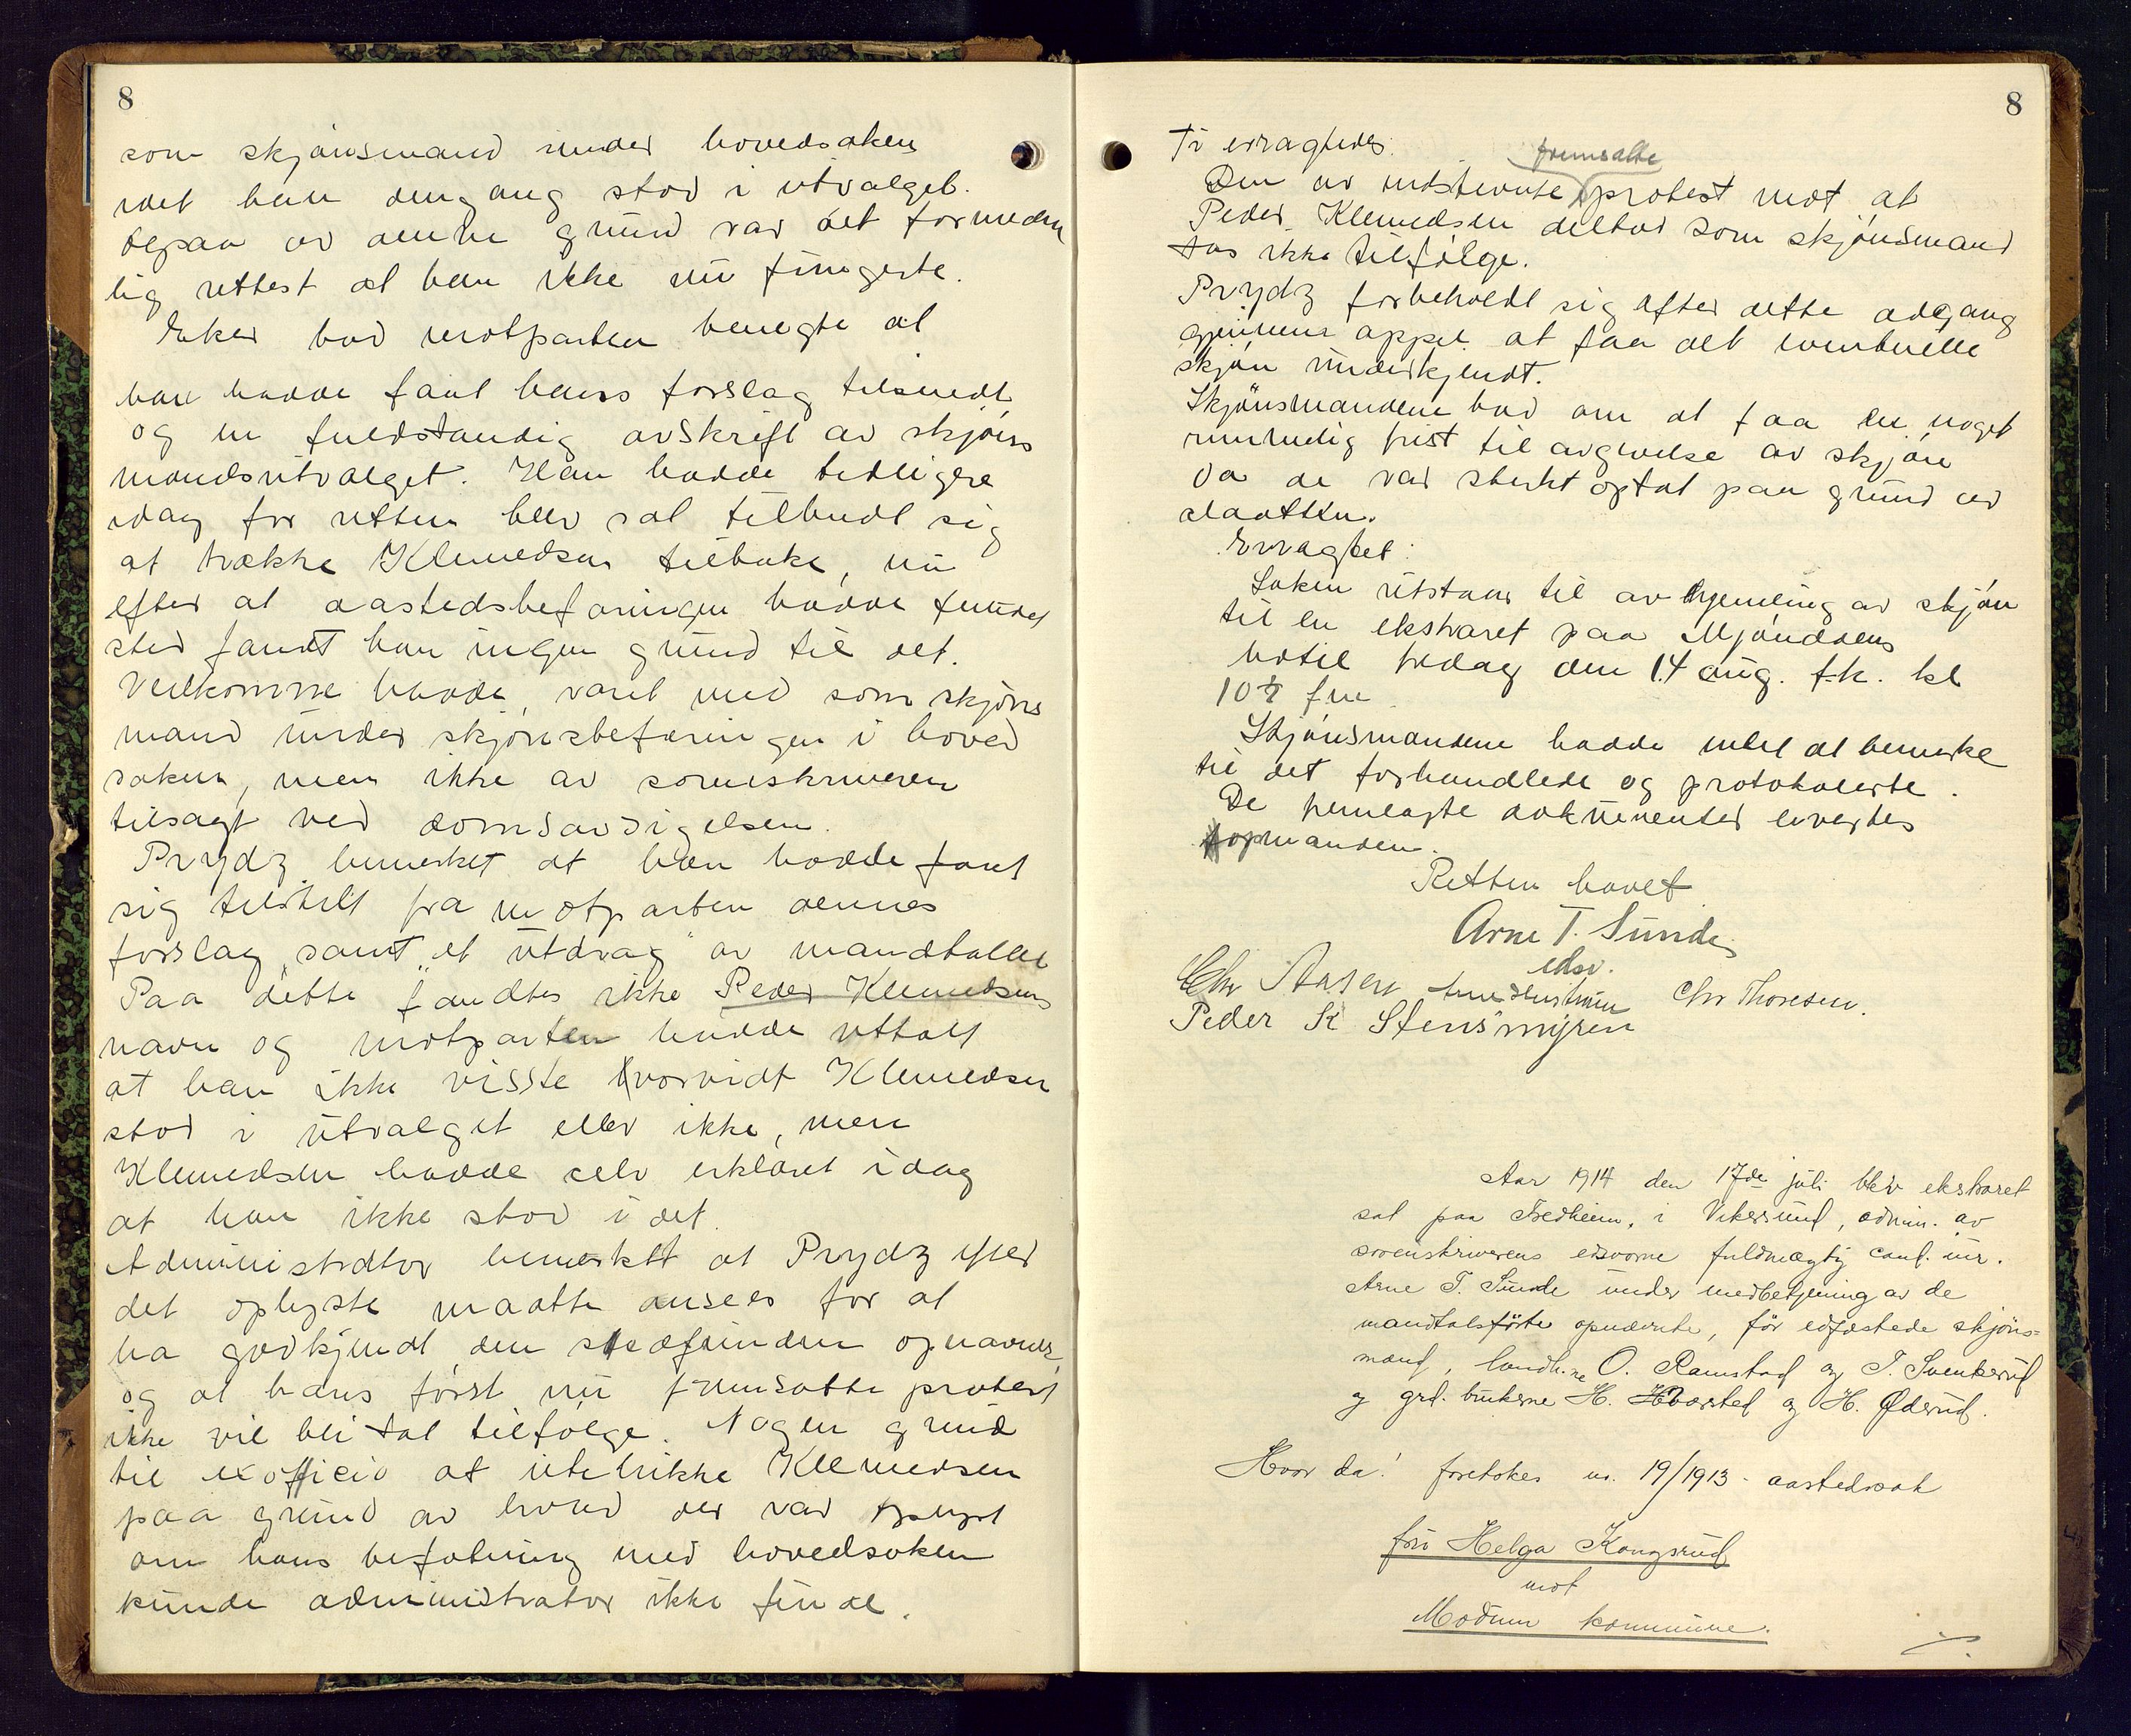 8
som skjønsmand under hovedsaken
idet han dengang stod i utvalget.
av denne grund var det formeden
lig rettest at han ikke nu fungerte.
Eker bad motparten benegte at
han hadde faat hans forslag tilsendt
og en fuldstændig avskrift av skjøns
mandsutvalget. Han hadde tidligere
idag før retten blev sat tilbudt sig
at trække Klemedsen tilbake, nu
efter at aastedsbefaringen hadde fundet
sted fandt han ingen grund til det.
Vedkomne hadde varet med som skjøns
mand under skjønsbefaringen i hoved
saken, men ikke av sorenskriveren
tilsagt ved domsavsigelsen.
Prydz bemerket at han hadde faat
sig tilstillt fra motparten dennes
forslag samt "et utdrag" av mandtallet
Paa dette fandtes ikke Peder Klemedsens
navn og motparten hadde uttalt
at han ikke visste hvorvidt Klemedsen
stod i utvalget eller ikke, men
Klemedsen hadde selv erklæret idag
at han ikke stod i det.
Administrator bemerket at Prydz efter
det oplyste maatte ansees for at
ha godkjendt den stedfundne opnævnelse
og at hans først nu fremsatte protest
ikke vil bli tat tilfølge. Nogen grund
til ex officio at utelukke Klemedsen
paa grund av hvad der var oplyst
om hans befatning med hovedsaken
kunde administrator ikke finde.
8
Ti eragtedes:
fremsatte
Den av indstevnte protest mot at
Peder Klemedsen deltar som skjønsmand
tas ikke tilfølge.
Prydz forbeholdt sig efter dette adgang
gjennem appel at faa det eventuelle
skjøn underkjendt.
Skjønsmændene bad om at faa en noget
rummelig frist til avgivelse av skjøn
da de var sterkt optat paa grund av
slaatten.
Eragtet:
Saken utstaar til avhjemling av skjøn
til en ekstraret paa Mjøndalens
hotel fredag den 14 aug. f.k. kl
10½ fm
Skjønsmændene hadde intet at bemerke
til det forhandlede og protokolerte.
De fremlagte dokumenter leverdes
opmanden.
Retten hævet
Arne T. Sunde
edsv.
Chr Aasen Chr Thoresen.
Peder K Stensmyren
Aar 1914 den 17de juli blev ekstraret
sat paa Fredheim, i Vikersund, admin. av
sorenskriverens edsvorne fuldmægtig cand. jur.
Arne T. Sunde under medbetjening av de
mandtalsførte opnævnte, før edfæstede skjøns=
mænd, landh.ne O. Ramstad og T. Svenkerud
og grd. brukerne H. Hvarstad og H. Øderud.
Hvor da! foretokes nr. 19/1913 - aastedssak
fru Helga Kongsrud
mot
Modum kommune.